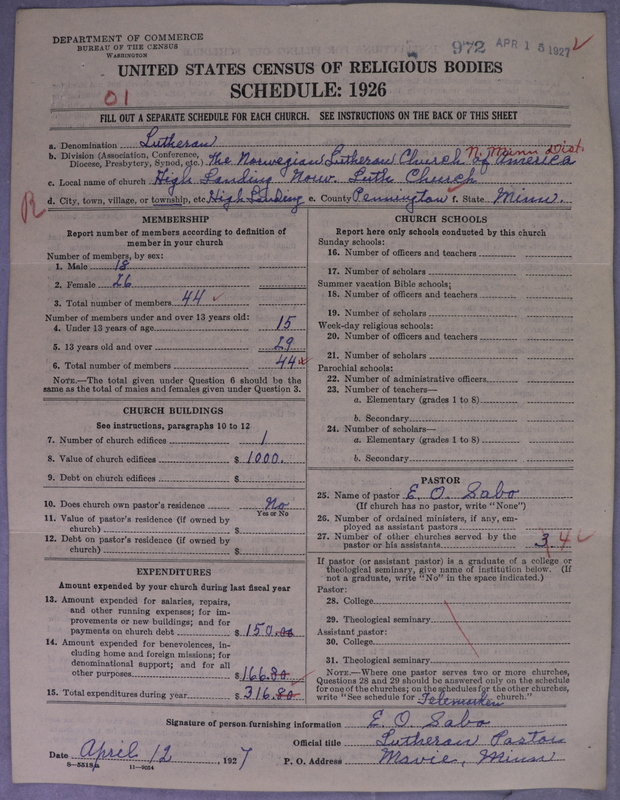 DEPARTMENT OF COMMERCE
BUREAU OF THE CENSUS
WASHINGTON
972 APR 15 1927
UNITED STATES CENSUS OF RELIGIOUS BODIES
SCHEDULE: 1926
01
FILL OUT A SEPARATE SCHEDULE FOR EACH CHURCH. SEE INSTRUCTIONS ON THE BACK OF THIS SHEET
a. Denomination Lutheran
N. Minn Dist.
b. Division (Association, Conference, Diocese, Presbytery, Synod, etc.) The Norwegian Lutheran Church of America
c. Local name of church High Landing Norw. Luth Church
R
d. City, town, village, or township, etc. High Landing e. County Pennington f. State Minn.
MEMBERSHIP
Report number of members according to definition of
member in your church
Number of members, by sex:
1. Male 18
2. Female 26
3. Total number of members 44
Number of members under and over 13 years old:
4. Under 13 years of age 15
5. 13 years old and over 29
6. Total number of members 44
NOTE.—The total given under Question 6 should be the
same as the total of males and females given under Question 3.
CHURCH BUILDINGS
See instructions, paragraphs 10 to 12
7. Number of church edifices 1
8. Value of church edifices $ 1000.
9. Debt on church edifices $
10. Does church own pastor's residence No
Yes or No
11. Value of pastor's residence (if owned by
church) $
12. Debt on pastor's residence (if owned by
church) $
EXPENDITURES
Amount expended by your church during last fiscal year
13. Amount expended for salaries, repairs,
and other running expenses; for im-
provements or new buildings; and for
payments on church debt $ 150.00
14. Amount expended for benevolences, in-
cluding home and foreign missions; for
denominational support; and for all
other purposes $ 166.80
15. Total expenditures during year $ 316.80
CHURCH SCHOOLS
Report here only schools conducted by this church
Sunday schools:
16. Number of officers and teachers
17. Number of scholars
Summer vacation Bible schools;
18. Number of officers and teachers
19. Number of scholars
Week-day religious schools:
20. Number of officers and teachers
21. Number of scholars
Parochial schools:
22. Number of administrative officers
23. Number of teachers—
a. Elementary (grades 1 to 8)
b. Secondary
24. Number of scholars—
a. Elementary (grades 1 to 8)
b. Secondary
PASTOR
25. Name of pastor E. O. Sabo
(If church has no pastor, write "None")
26. Number of ordained ministers, if any, em-
ployed as assistant pastors
27. Number of other churches served by the
pastor or his assistants 3 4
If pastor (or assistant pastor) is a graduate of a college or
theological seminary, give name of institution below. (If
not a graduate, write "No" in the space indicated.)
Pastor:
28. College
29. Theological seminary
Assistant pastor:
30. College
31. Theological seminary
NOTE.—Where one pastor serves two or more churches,
Questions 28 and 29 should be answered only on the schedule
for one of the churches; on the schedules for the other churches,
write "See schedule for Telemarken church."
Signature of person furnishing information E. O. Sabo
Official title Lutheran Pastor
Date April 12, 1927 P. O. Address Mavie, Minn
8—5518a 11—9024